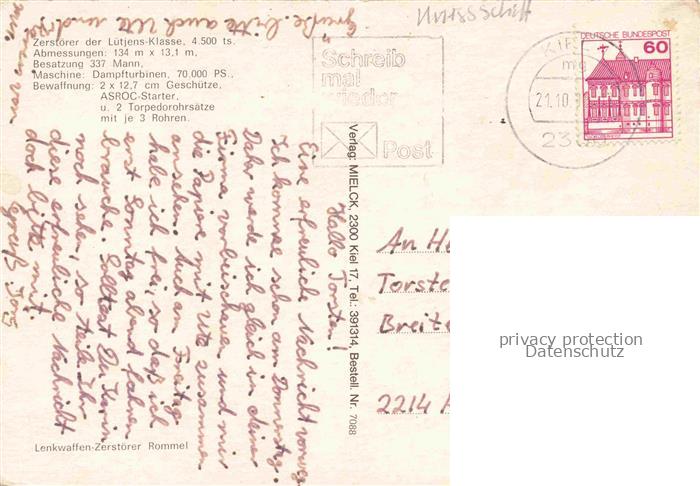 Kriegsschiff
Grüße bitte auch Utz und
von
Zerstörer der Lütjens-Klasse, 4.500 ts.
Abmessungen: 134 m x 13,1 m,
Besatzung 337 Mann,
Maschine: Dampfturbinen, 70.000 PS.,
Bewaffnung: 2 x 12,7 cm Geschütze,
ASROC-Starter,
u. 2 Torpedorohrsätze
mit je 3 Rohren.
Schreib
mal
wieder
Post
KIEL
mg
21.10.
23
DEUTSCHE BUNDESPOST
60
Verlag: MIELCK, 2300 Kiel 17, Tel.: 391314, Bestell. Nr. 7088
Hallo Torsten!
Eine erfreuliche Nachricht vorweg.
Ich komme schon am Donnerstag.
Daher werde ich gleich in deiner
Firma vorbeischauen und mir
die Papiere mit Utz zusammen
ansehen. Auch am Freitag
habe ich frei, so daß ich
erst Sonntag abend fahren
brauche. Solltest Du Karin
noch sehen, so teile Ihr
diese erfreuliche Nachricht
doch bitte mit.
Gruß Jörg
An He
Torste
Breite
2214
privacy protection
Datenschutz
Lenkwaffen-Zerstörer Rommel